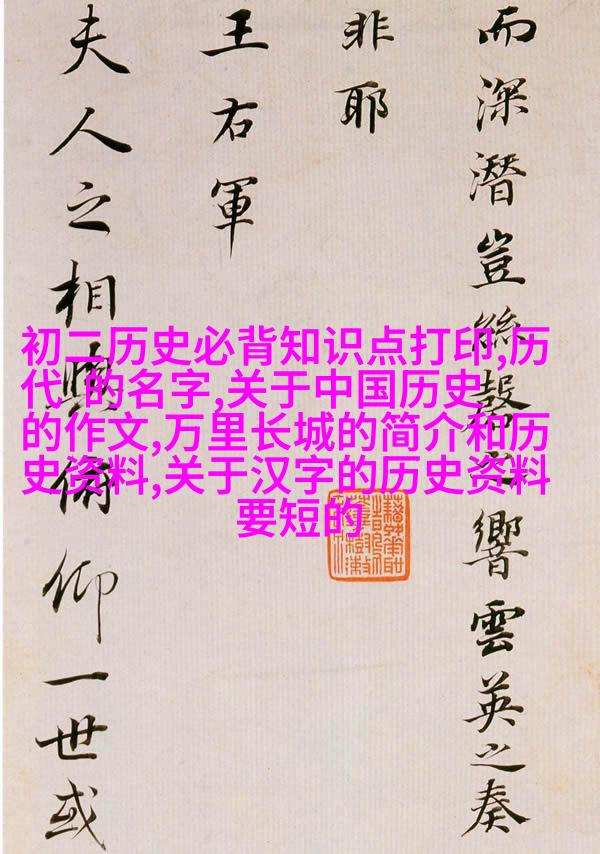 而深潛豈絲磬之響雲英之奏
非耶
王右軍
夫人之相與俯仰一世或
初二历史必背知识点打印,历
代 的名字,关于中国历史
的作文,万里长城的简介和历
史资料,关于汉字的历史资料
要短的